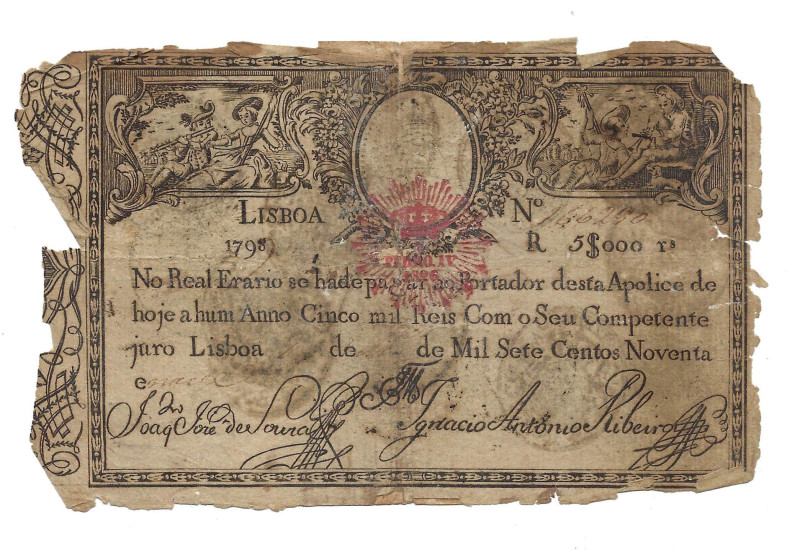 LISBOA Nº 146290
1798 R 5$000 rs
PEDRO IV
1826
No Real Erario se hade pagar ao Portador desta Apolice de
hoje a hum Anno Cinco mil Reis Com o Seu Competente
juro Lisboa de de Mil Sete Centos Noventa
e
Joaq José de Souza Ignacio António Ribeiro